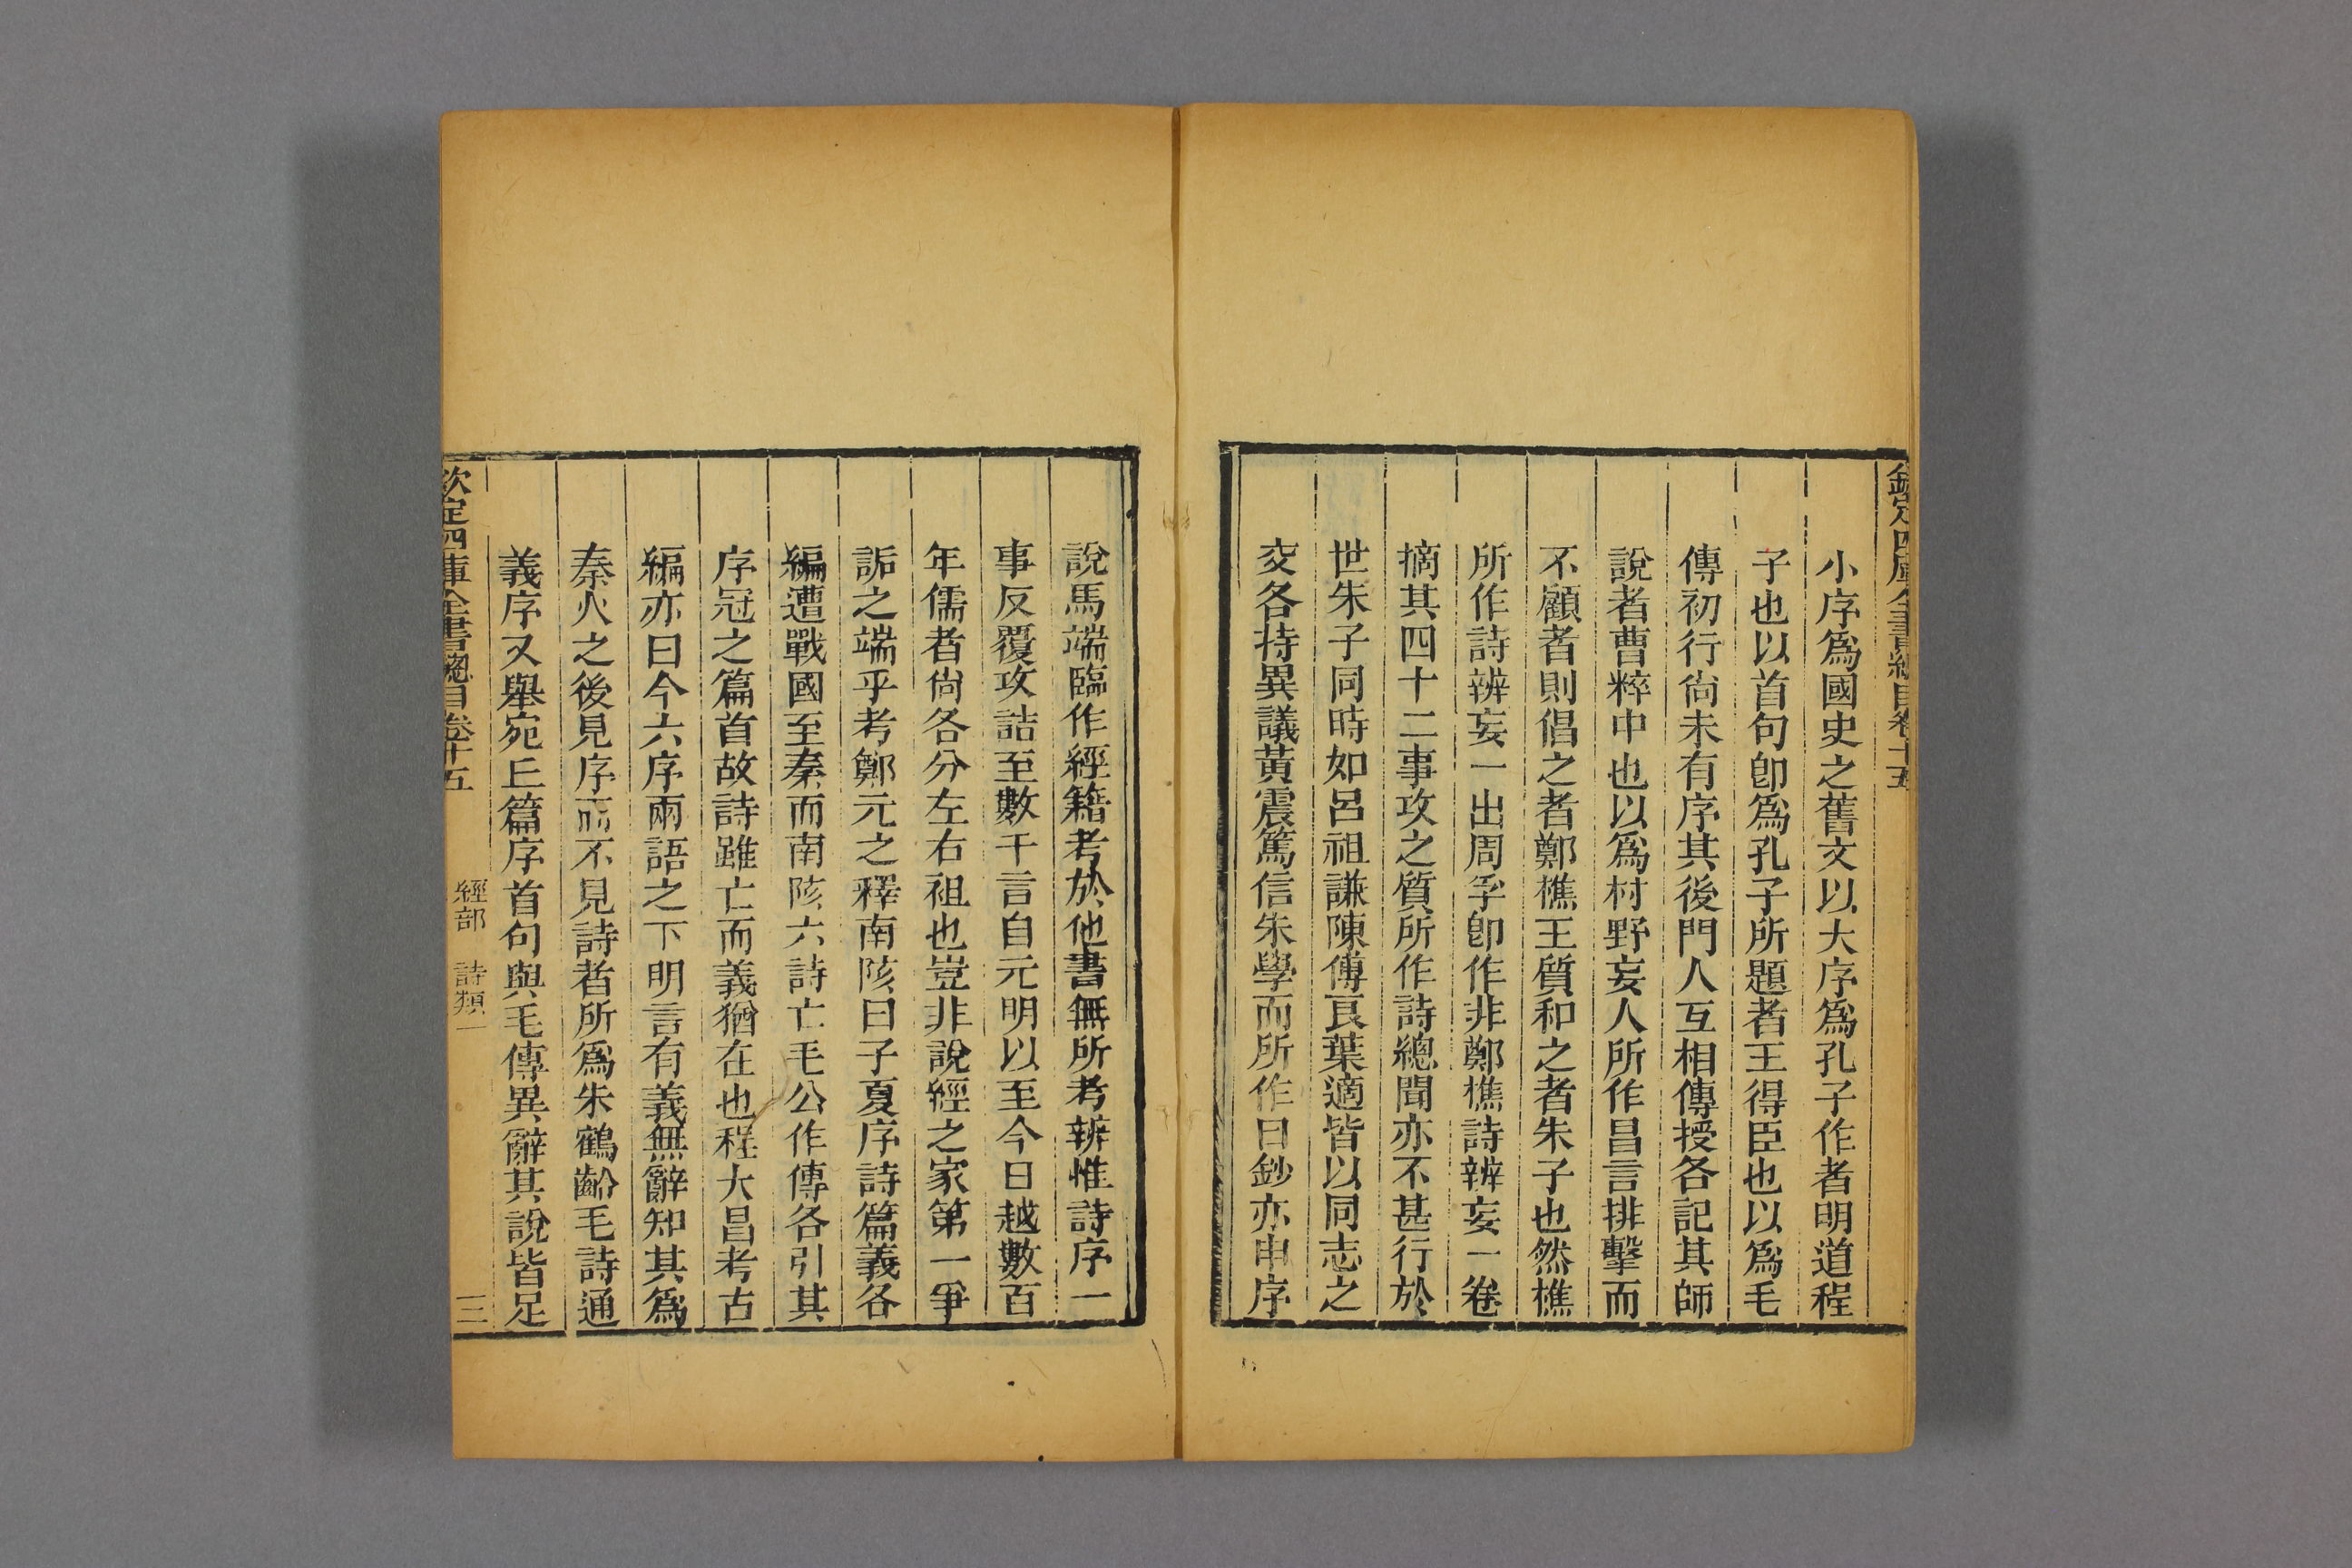 欽定四庫全書總目卷十五
小序爲國史之舊文以大序爲孔子作者明道程
子也以首句卽爲孔子所題者王得臣也以爲毛
傳初行尙未有序其後門人互相傳授各記其師
說者曹粹中也以爲村野妄人所作昌言排擊而
不顧者則倡之者鄭樵王質和之者朱子也然樵
所作詩辨妄一出周孚卽作非鄭樵詩辨妄一卷
摘其四十二事攻之質所作詩總聞亦不甚行於
世朱子同時如呂祖謙陳傅良葉適皆以同志之
交各持異議黃震篤信朱學而所作日鈔亦申序
說馬端臨作經籍考於他書無所考辨惟詩序一
事反覆攻詰至數千言自元明以至今日越數百
年儒者尙各分左右祖也豈非說經之家第一爭
詬之端乎考鄭元之釋南陔曰子夏序詩篇義各
編遭戰國至秦而南陔六詩亡毛公作傳各引其
序冠之篇首故詩雖亡而義猶在也程大昌考古
編亦曰今六序兩語之下明言有義無辭知其爲
秦火之後見序而不見詩者所爲朱鶴齡毛詩通
義序又舉宛丘篇序首句與毛傳異辭其說皆足
欽定四庫全書總目卷十五
經部 詩類一
三